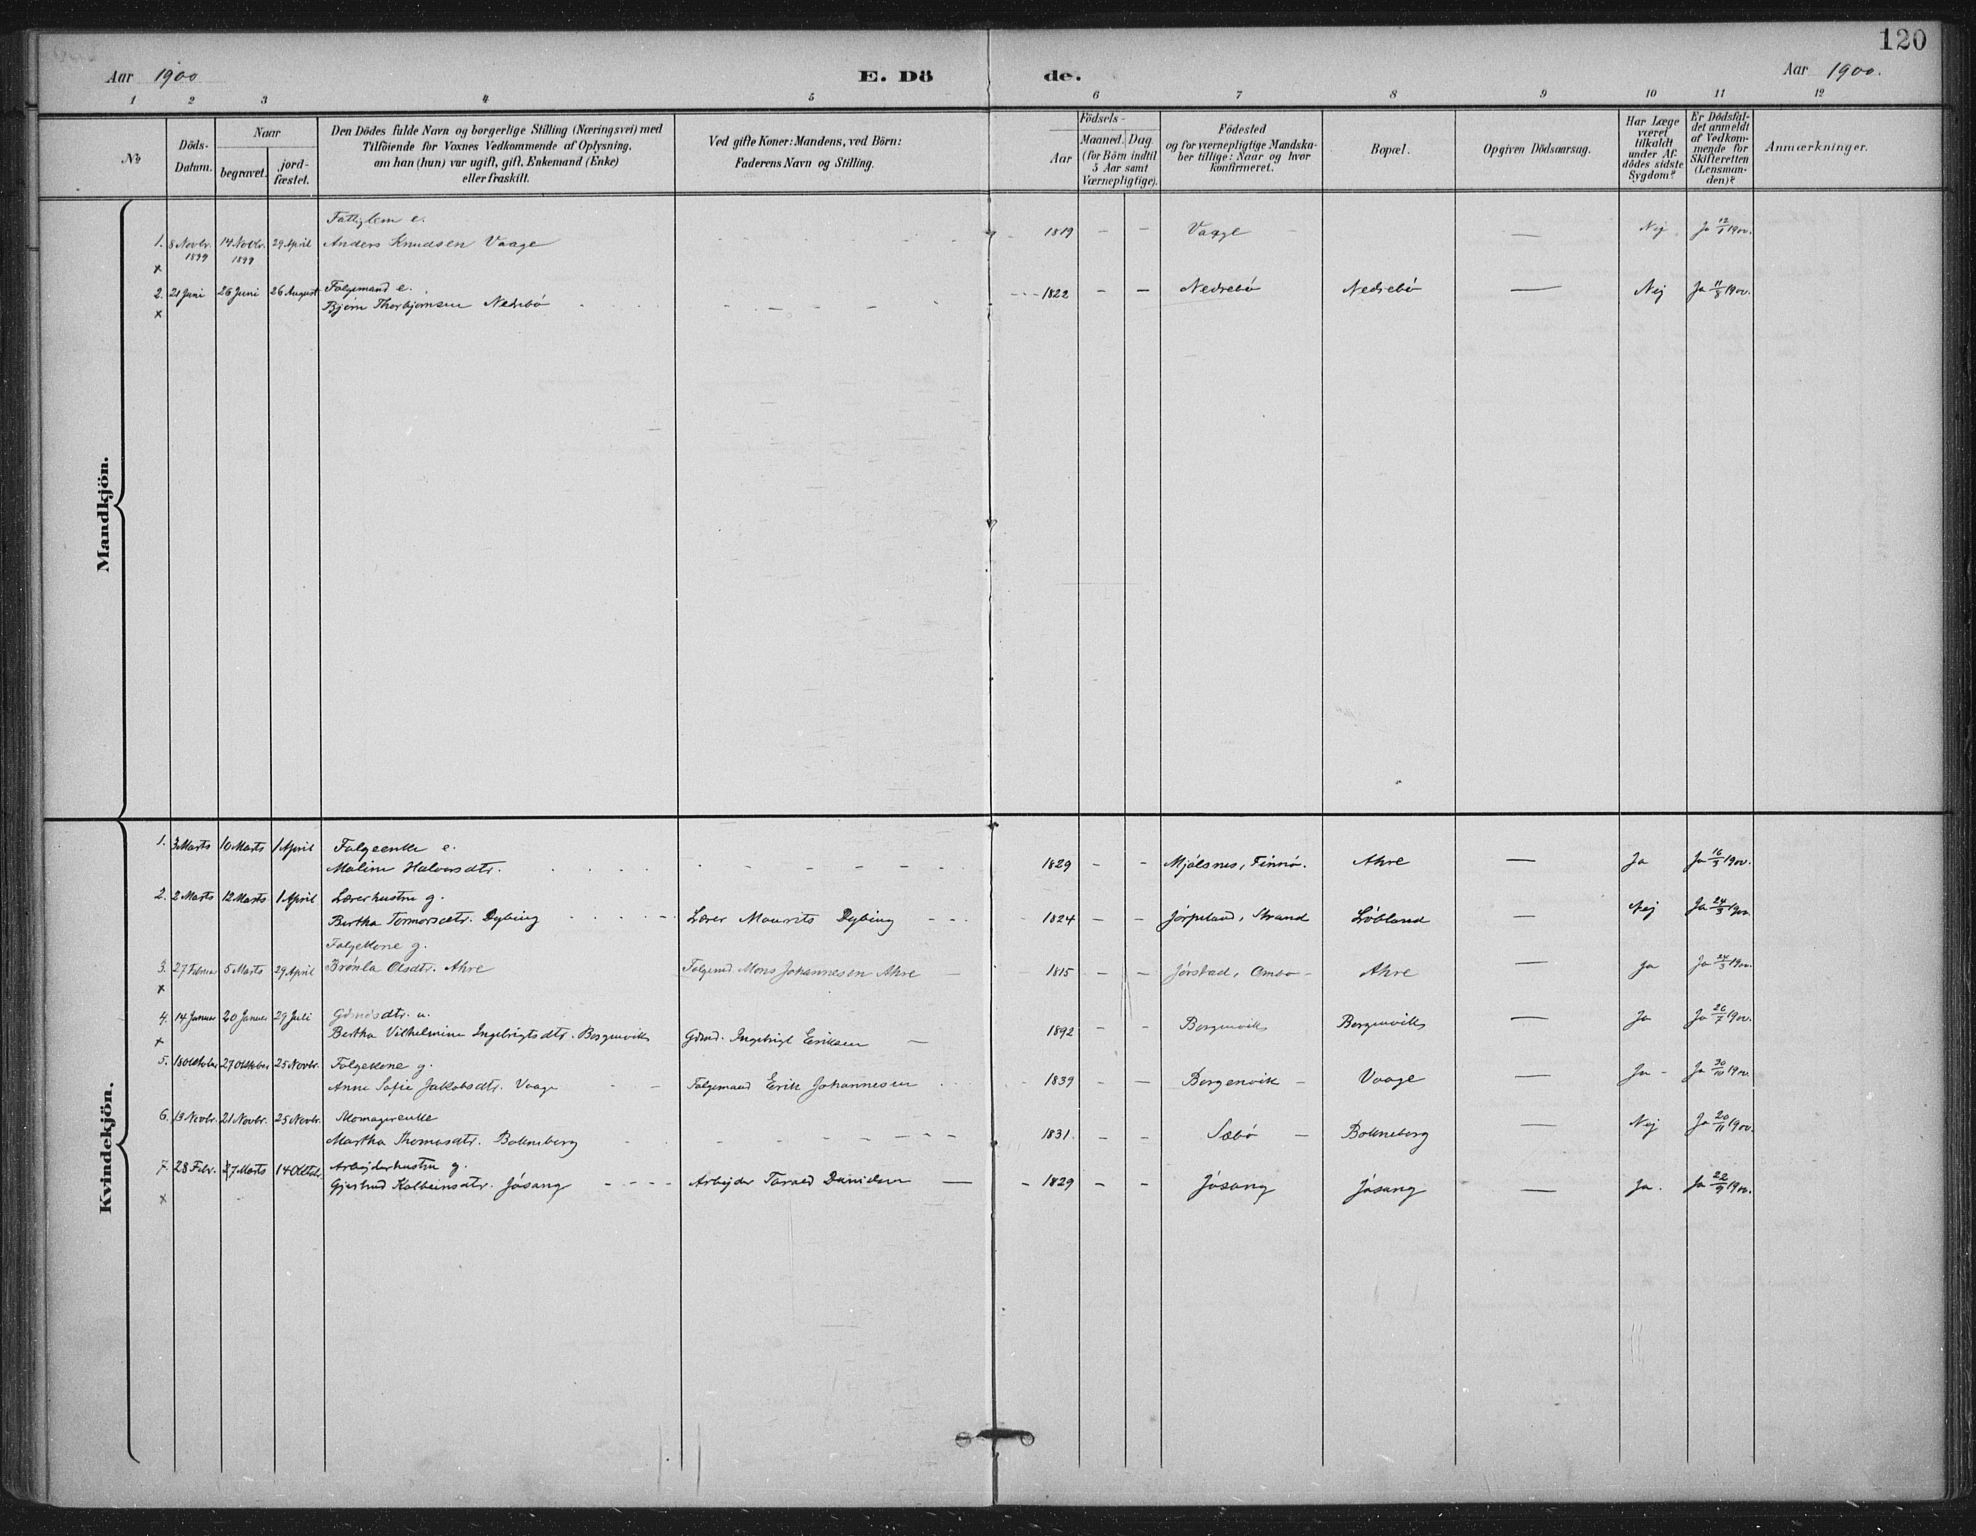 120
Aar 1900
E. Dö
de.
Aar 1900.
1 2 3 4 5 6 7 8 9 10 11 12
No
Döds-
Datum.
Naar
begravet.
jord-
fæstet.
Den Dödes fulde Navn og borgerlige Stilling (Næringsvei) med
Tilföiende for Voxnes Vedkommende af Oplysning,
om han (hun) var ugift, gift, Enkemand (Enke)
eller fraskilt.
Ved gifte Koner: Mandens, ved Börn:
Faderens Navn og Stilling.
Födsels-
Aar
Maaned. Dag.
(for Börn indtil
5 Aar samt
Værnepligtige).
Födested
og for værnepligtige Mandska-
ber tillige: Naar og hvor
konfirmeret.
Bopæl.
Opgiven Dödsaarsag.
Har Læge
været
tilkaldt
under Af-
dödes sidste
Sygdom?
Er Dödsfal-
det anmeldt
af Vedkom-
mende for
Skifteretten
(Lensman-
den)?
Anmærkninger.
Mandkjön.
Fattiglem e.
1. 8 Novbr. 14 Novbr. 29 April Anders Knudsen Vaage - - - - - 1819 - - Vaage - — Nej Ja 12/1 1900.
1899 1899
x
Folgemand e.
2. 21 Juni 26 Juni 26 August Bjørn Thorbjørnsen Nedrebø - - - - - 1822 - - Nedrebø Nedrebø — Nej Ja 11/8 1900.
x
Kvindekjön.
1. 3 Marts 10 Marts 1 April Folgeenke e.
Malene Halvorsdtr. - - - - - 1829 - - Mjølsnes, Finnø. Ahre — Ja Ja 16/3 1900.
2. 2 Marts 12 Marts 1 April Lærerhustru g.
Bertha Tormodsdtr. Dybing - - - Lærer Mourits Dybing - - - 1824 - - Jørpeland, Strand Løbland — Nej Ja 24/3 1900.
Folgekone g.
3. 27 Februar 5 Marts 29 April Brønla Olsdtr. Ahre Folgemd. Mons Johannesen Ahre — 1815 - - Jørstad, Ombo - Ahre — Ja Ja 24/3 1900.
x
4. 14 Januar 20 Januar 29 Juli Gdmdsdtr. u.
Bertha Vilhelmine Ingebrigtsdtr. Borgenvik Gdmd. Ingebrigt Eriksen — 1892 - - Borgenvik Borgenvik — Ja Ja 26/7 1900.
x
5. 18 Oktober 27 Oktober 25 Novbr. Folgekone g.
Anne Sofie Jakobsdtr. Vaage - - Folgemand Erik Johannesen - - 1839 - - Borgenvik - Vaage — Ja - Ja 30/10 1900.
6. 13 Novbr. 21 Novbr. 25 Novbr.
Martha Thomasdtr. Bokneberg - - - - - 1831. - - Sæbø - Bokneberg — Nej Ja 20/11 1900.
7. 28 Febr. 7 Marts 14 Oktob. Arbejderhustru g.
Gjertrud Kolbeinsdtr. Jøsang - - - Arbejder Tarald Danielsen — - 1829 - - Jøsang Jøsang — Ja. Ja 22/9 1900.
x